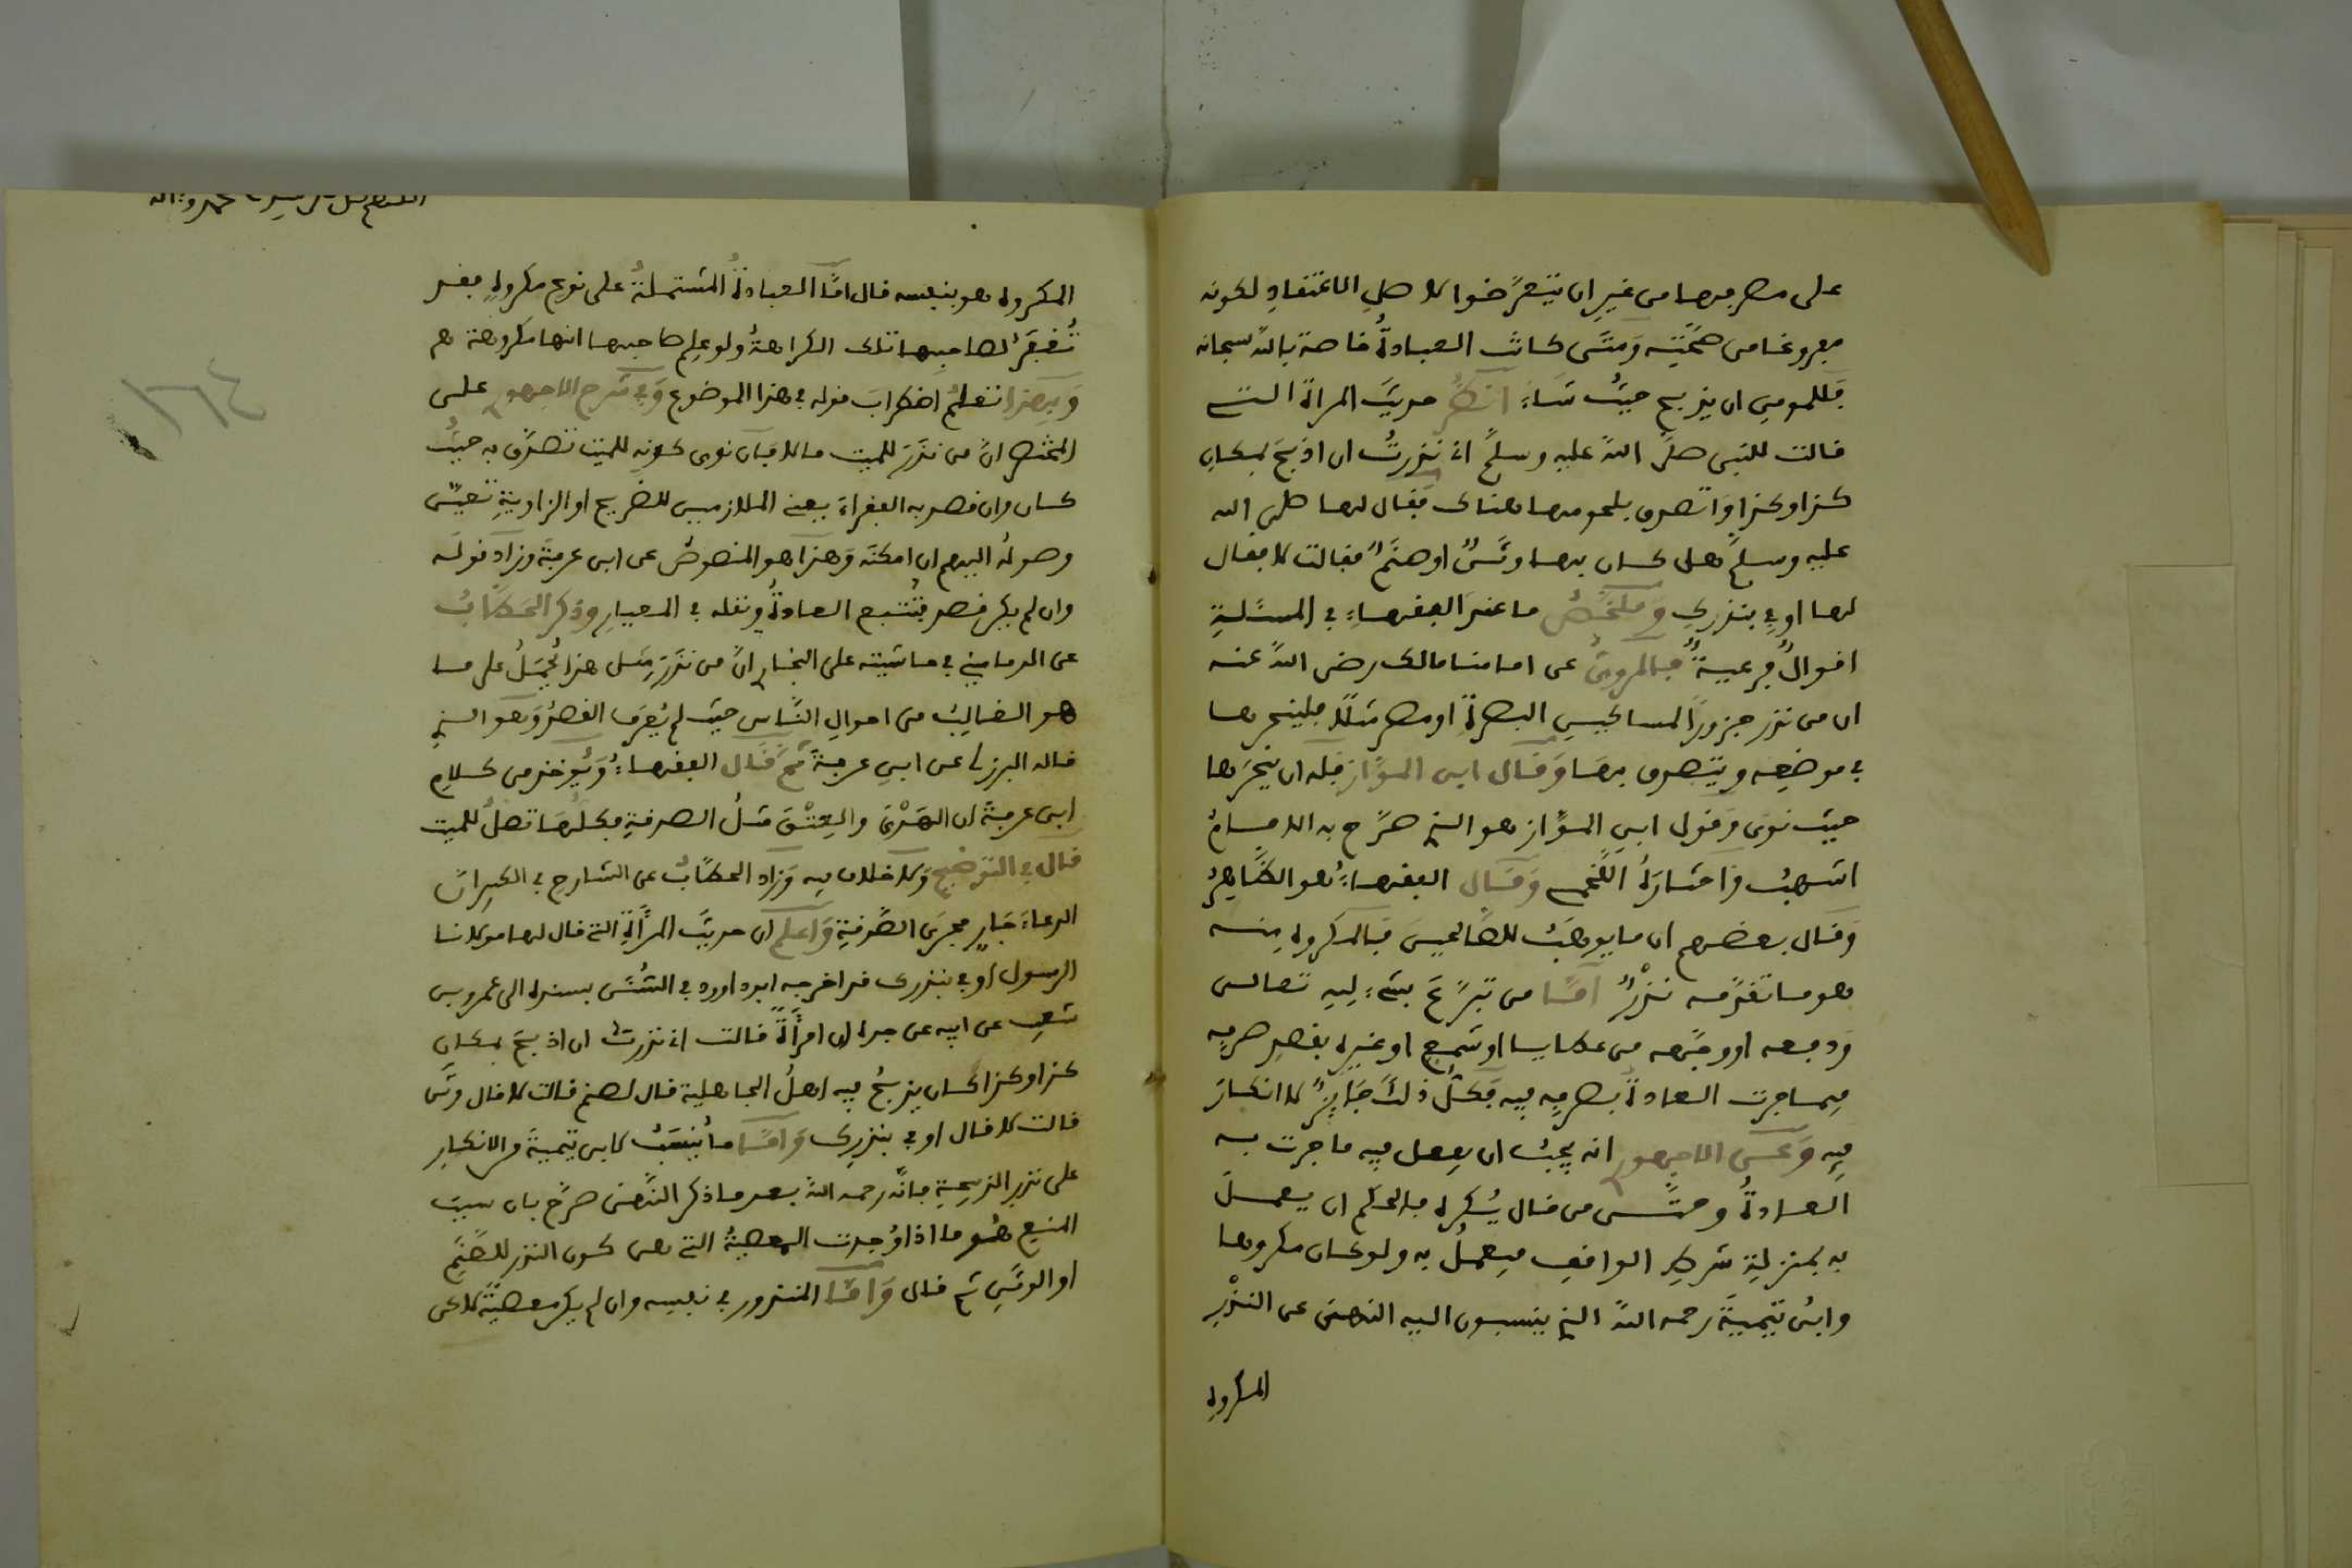 على مصرفها من غير ان يتعرضوا لاصل الاعتقاد لكونه
مفروغا من صحته ومتى كانت العبادة خاصة بالله سبحانه
فللمومن ان يذبح حيث شاء انظر حديث المراة التي
قالت للنبي صلى الله عليه وسلم اني نذرت ان اذبح بمكان
كذا وكذا واتصدق بلحومها هناك فقال لها صلى الله
عليه وسلم هل كان بها وثن او صنم فقالت لا فقال
لها اوفي بنذرك وملخص ما عند الفقهاء في المسئلة
اقوال فرعية فالمروي عن امامنا مالك رضي الله عنه
ان من نذر جزورا لمساكين البصرة او مصر مثلا فلينحرها
في موضعه ويتصدق بها وقال ابن المواز فله ان ينحرها
حيث نوى وقول ابن المواز هو الذي صرح به الامام
اشهب واختاره اللخمي وقال الفقهاء هو الظاهر
وقال بعضهم ان ما يوهب للصالحين فالمكروه منه
هو ما تقدمه نذر اما من تبرع بشيء لله تعالى
ودفعه او وضعه من عطايا او شمع او غيره بقصد صرفه
فيما جرت العادة بصرفه فيه فكل ذلك جايز لا انكار
فيه وعن الاجهوري انه يجب ان يفعل فيه ما جرت به
العادة وحتى من قال يكره فالحكم ان يعمل
به بمنزلة شرط الواقف فيعمل به ولو كان مكروها
وابن تيمية رحمه الله الذي ينسبون اليه النهي عن النذر
المكروه
المكروه هو بنفسه قال اما العبادة المشتملة على نوع مكروه فقد
تغفر لصاحبها تلك الكراهة ولو علم صاحبها انها مكروهة هـ
وبهذا تعلم اضطراب قوله في هذا الموضوع وفي شرح الاجهوري على
المختصر ان من نذر للميت مالا فان نوى كونه للميت تصدق به حيث
كان وان قصد به الفقراء يعني الملازمين للضريح او الزاوية تعين
وصوله اليهم ان امكنه وهذا هو المنصوص عن ابن عرفة وزاد قوله
وان لم يكن قصد فتتبع العادة ونقله في المعيار وذكر الحطاب
عن الدماميني في حاشيته على البخاري ان من نذر مثل هذا يحمل على ما
هو الغالب من احوال الناس حيث لم يعرف القصد وهو الذي
قاله البرزلي عن ابن عرفة ثم قال الفقهاء ويوخذ من كلام
ابن عرفة ان الهدي والعتق مثل الصدقة فكلها تصل للميت
قال في التوضيح ولا خلاف فيه وزاد الحطاب عن الشارح في الكبير ان
الدعاء جار مجرى الصدقة واعلم ان حديث المراة التي قال لها مولانا
الرسول اوفي بنذرك قد اخرجه ابو داوود في السنن بسنده الى عمرو بن
شعيب عن ابيه عن جده ان امراة قالت اني نذرت ان اذبح بمكان
كذا وكذا كان يذبح فيه اهل الجاهلية قال لصنم قالت لا قال وثن
قالت لا قال اوفي بنذرك واما ما ينسب لابن تيمية من الانكار
على نذر الذبيحة فانه رحمه الله بعد ما ذكر النهي صرح بان سبب
المنع هو ما اذا وجدت المعصية التي هي كون النذر للصنم
او الوثن ثم قال واما المنذور في نفسه وان لم يكن معصية لاكن
١٦٤